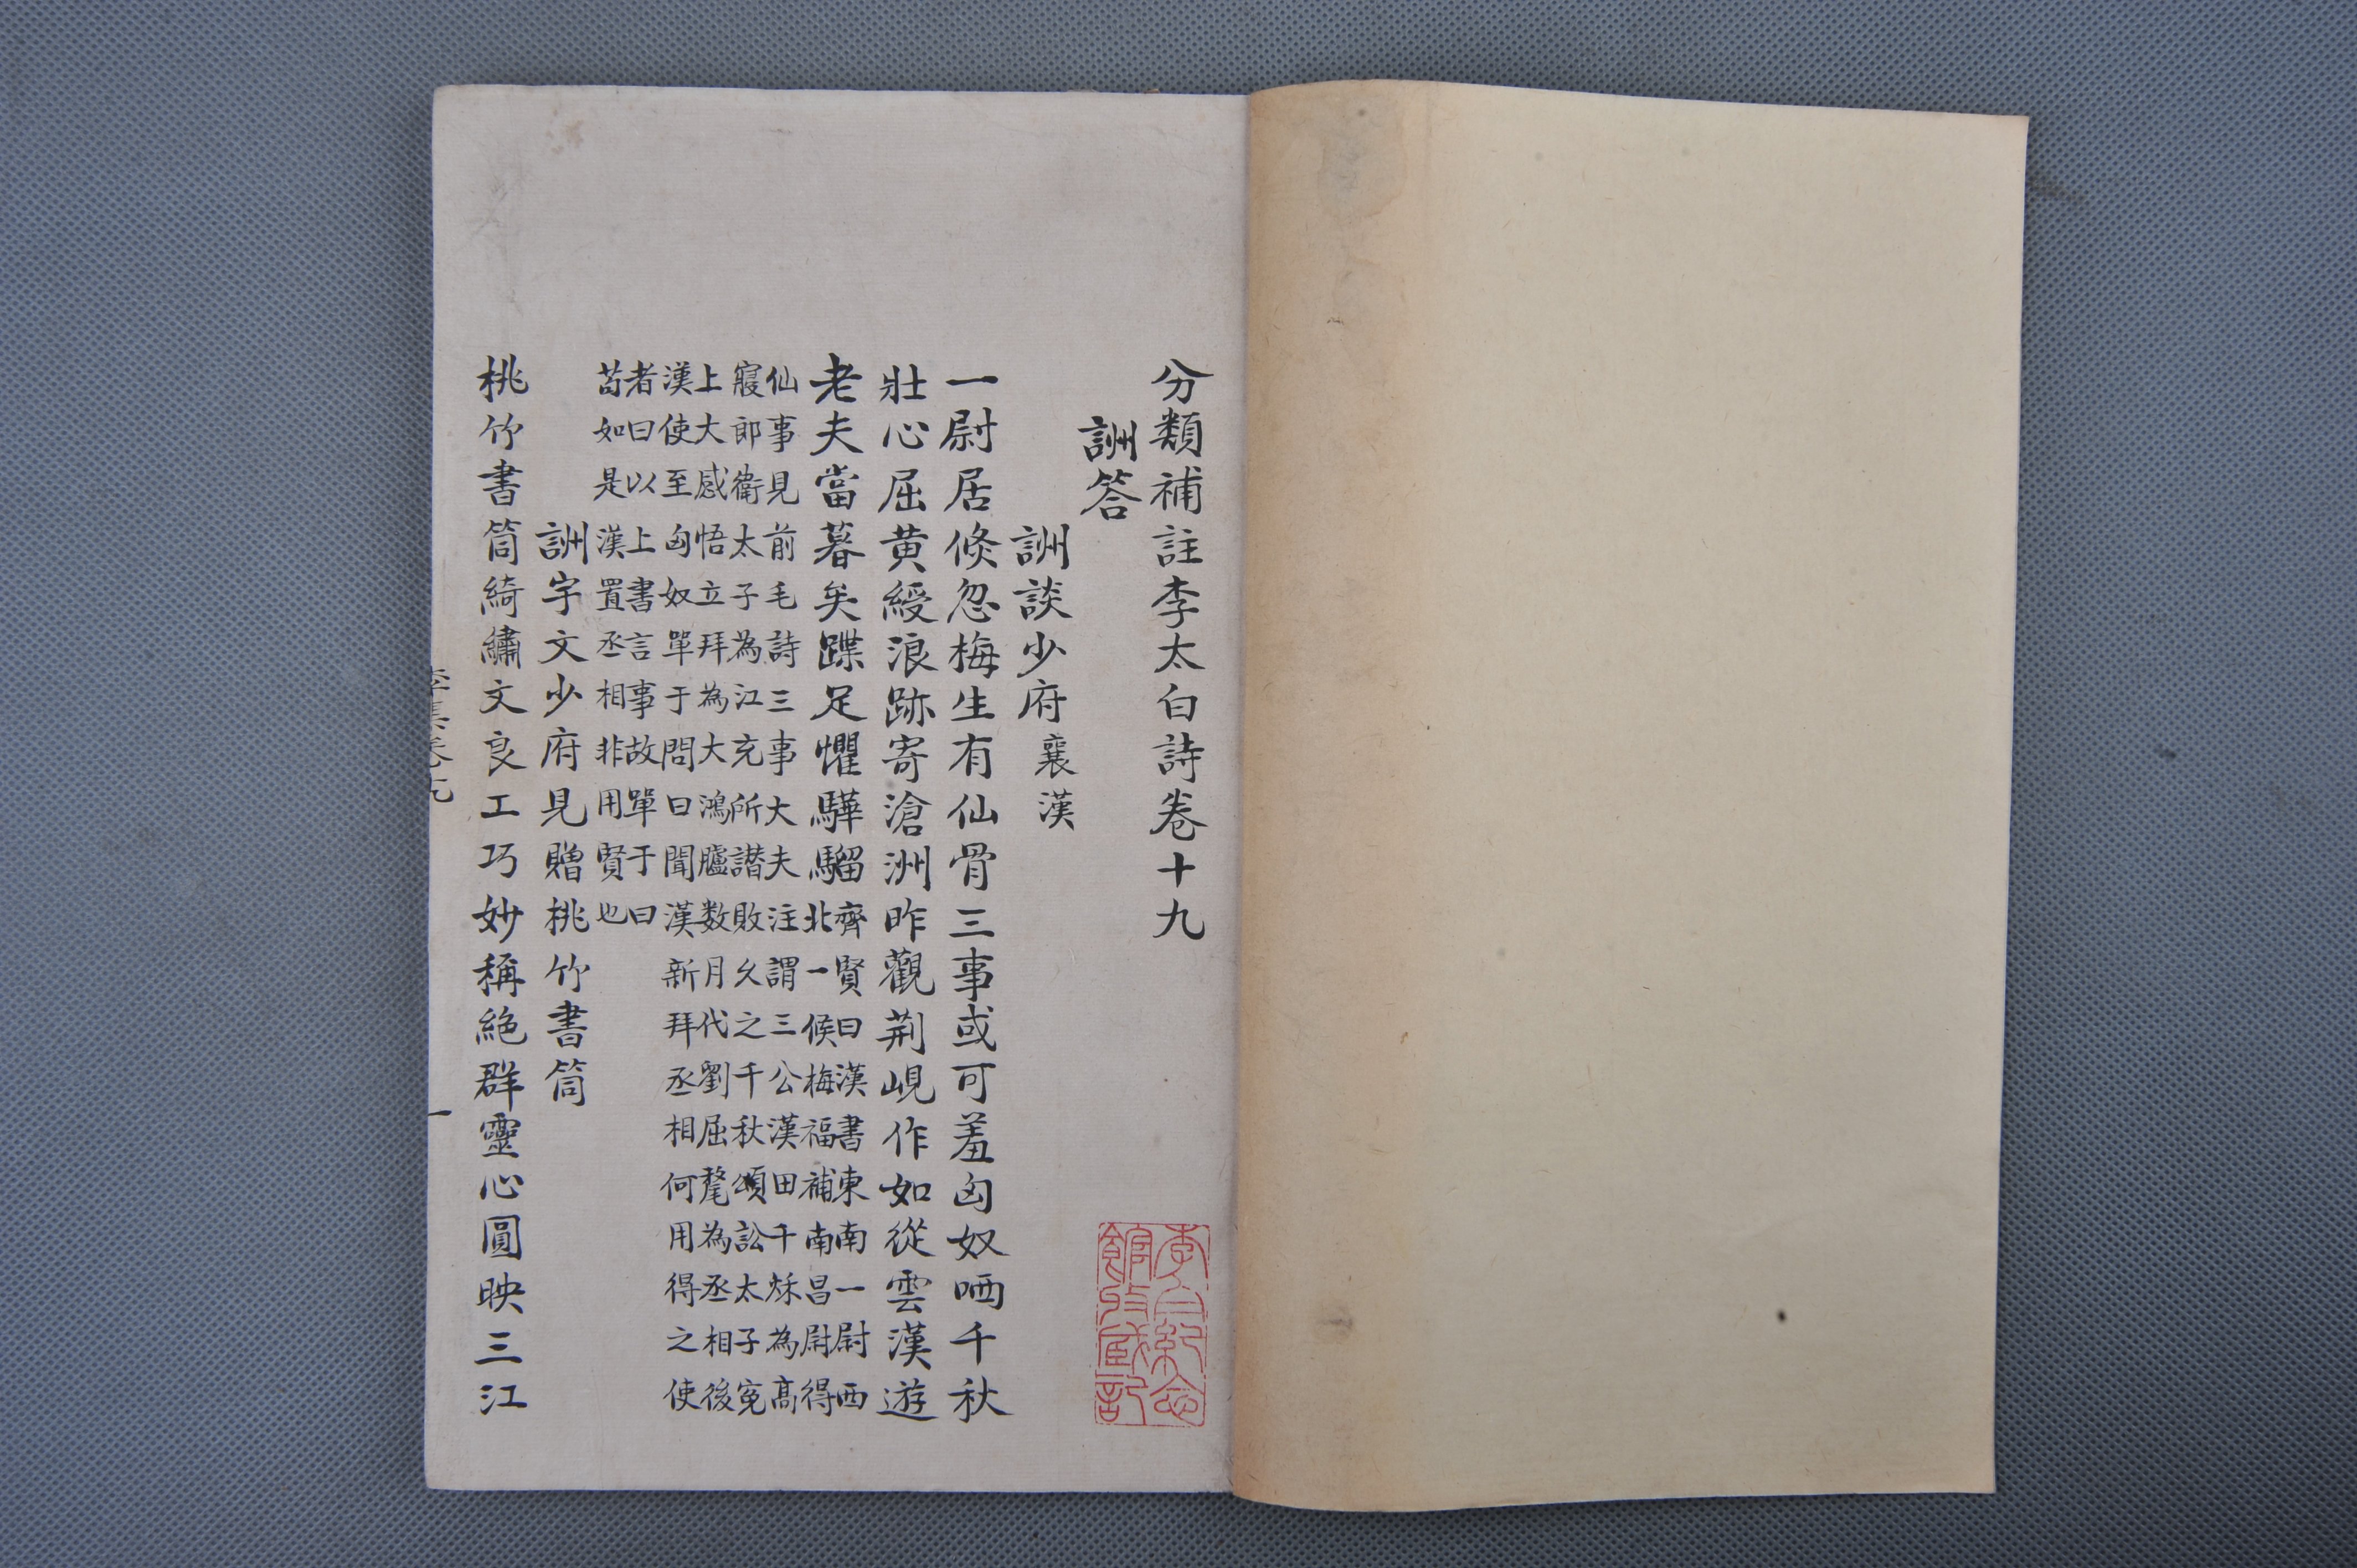 分類補註李太白詩卷十九
詶答
詶談少府襄漢
一尉居倏忽梅生有仙骨三事或可羞匈奴哂千秋
壯心屈黄綬浪跡寄滄洲昨觀荆峴作如從雲漢遊
老夫當暮矣蹀足懼驊騮
齊賢曰漢書東南一尉西
北一候梅福補南昌尉得
仙事見前毛詩三事大夫注謂三公漢田千秌為髙
寢郎衛太子為江充所譖敗久之千秋頌訟太子寃
上大感悟立拜為大鴻臚数月代劉屈氂為丞相後
漢使至匈奴單于問曰聞漢新拜丞相何用得之使
者曰以上書言事故單于曰
苟如是漢置丞相非用賢也
詶宇文少府見贈桃竹書筒
桃竹書筒綺繡文良工巧妙稱絶群靈心圓映三江
李集卷十九
一
李白紀念
館收藏記